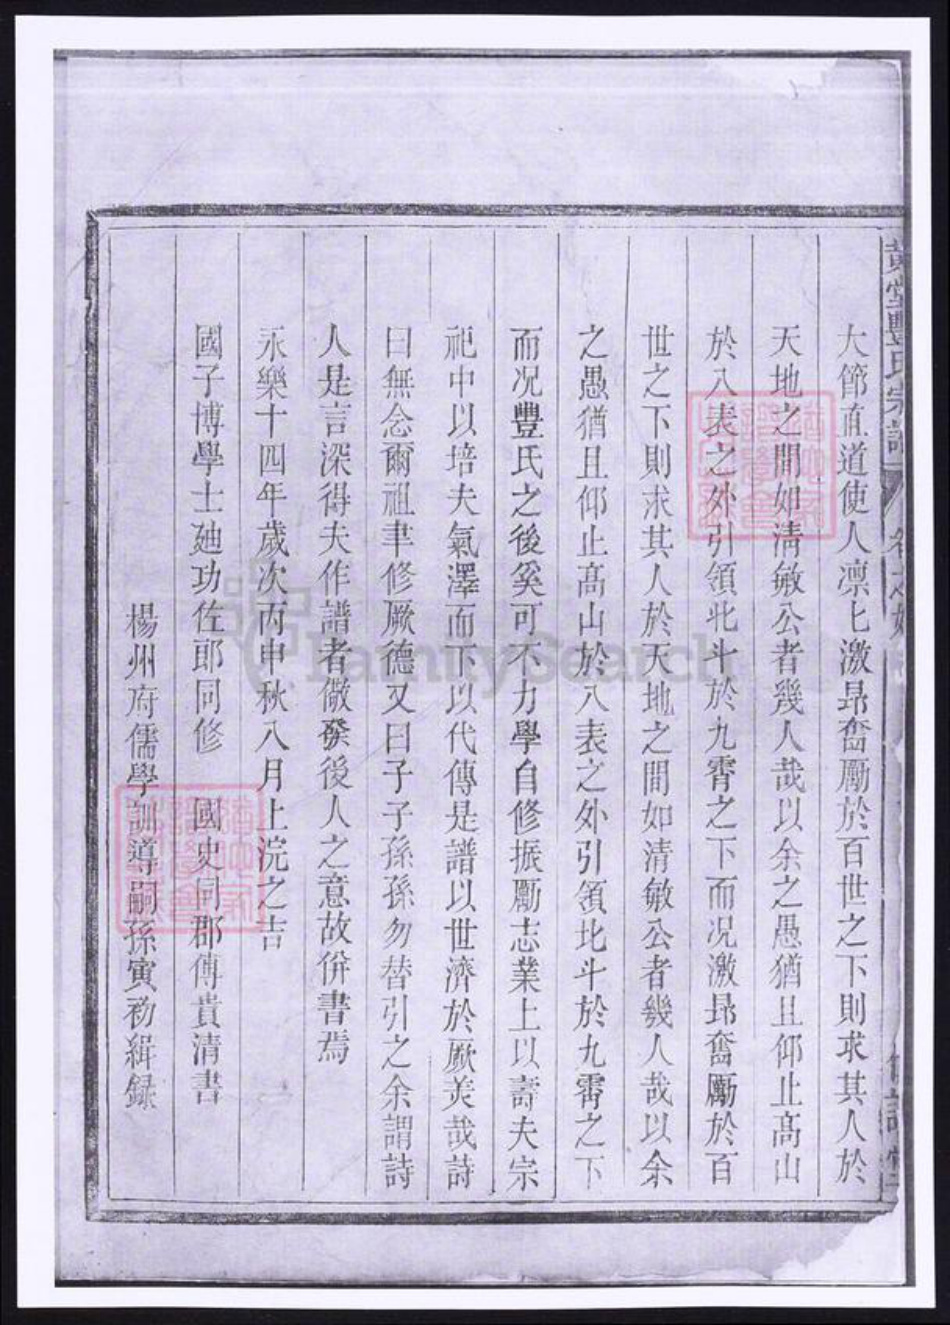 黃堂豐氏宗譜
大節直道使人凛匕激昻奮勵於百世之下則求其人於
天地之間如清敏公者幾人哉以余之愚猶且仰止高山
於八表之外引領北斗於九霄之下而况激昻奮勵於百
世之下則求其人於天地之間如清敏公者幾人哉以余
之愚猶且仰止高山於八表之外引領北斗於九霄之下
而况豐氏之後奚可不力學自修振勵志業上以壽夫宗
祀中以培夫氣澤而下以代傳是譜以世濟於厥美哉詩
曰無念爾祖聿修厥德又曰子子孫孫勿替引之余謂詩
人是言深得夫作譜者儆發後人之意故併書焉
永樂十四年歲次丙申秋八月上浣之吉
國子博學士廸功佐郎同修 國史同郡傅貴清書
楊州府儒學訓導嗣孫寅初緝録
FamilySearch